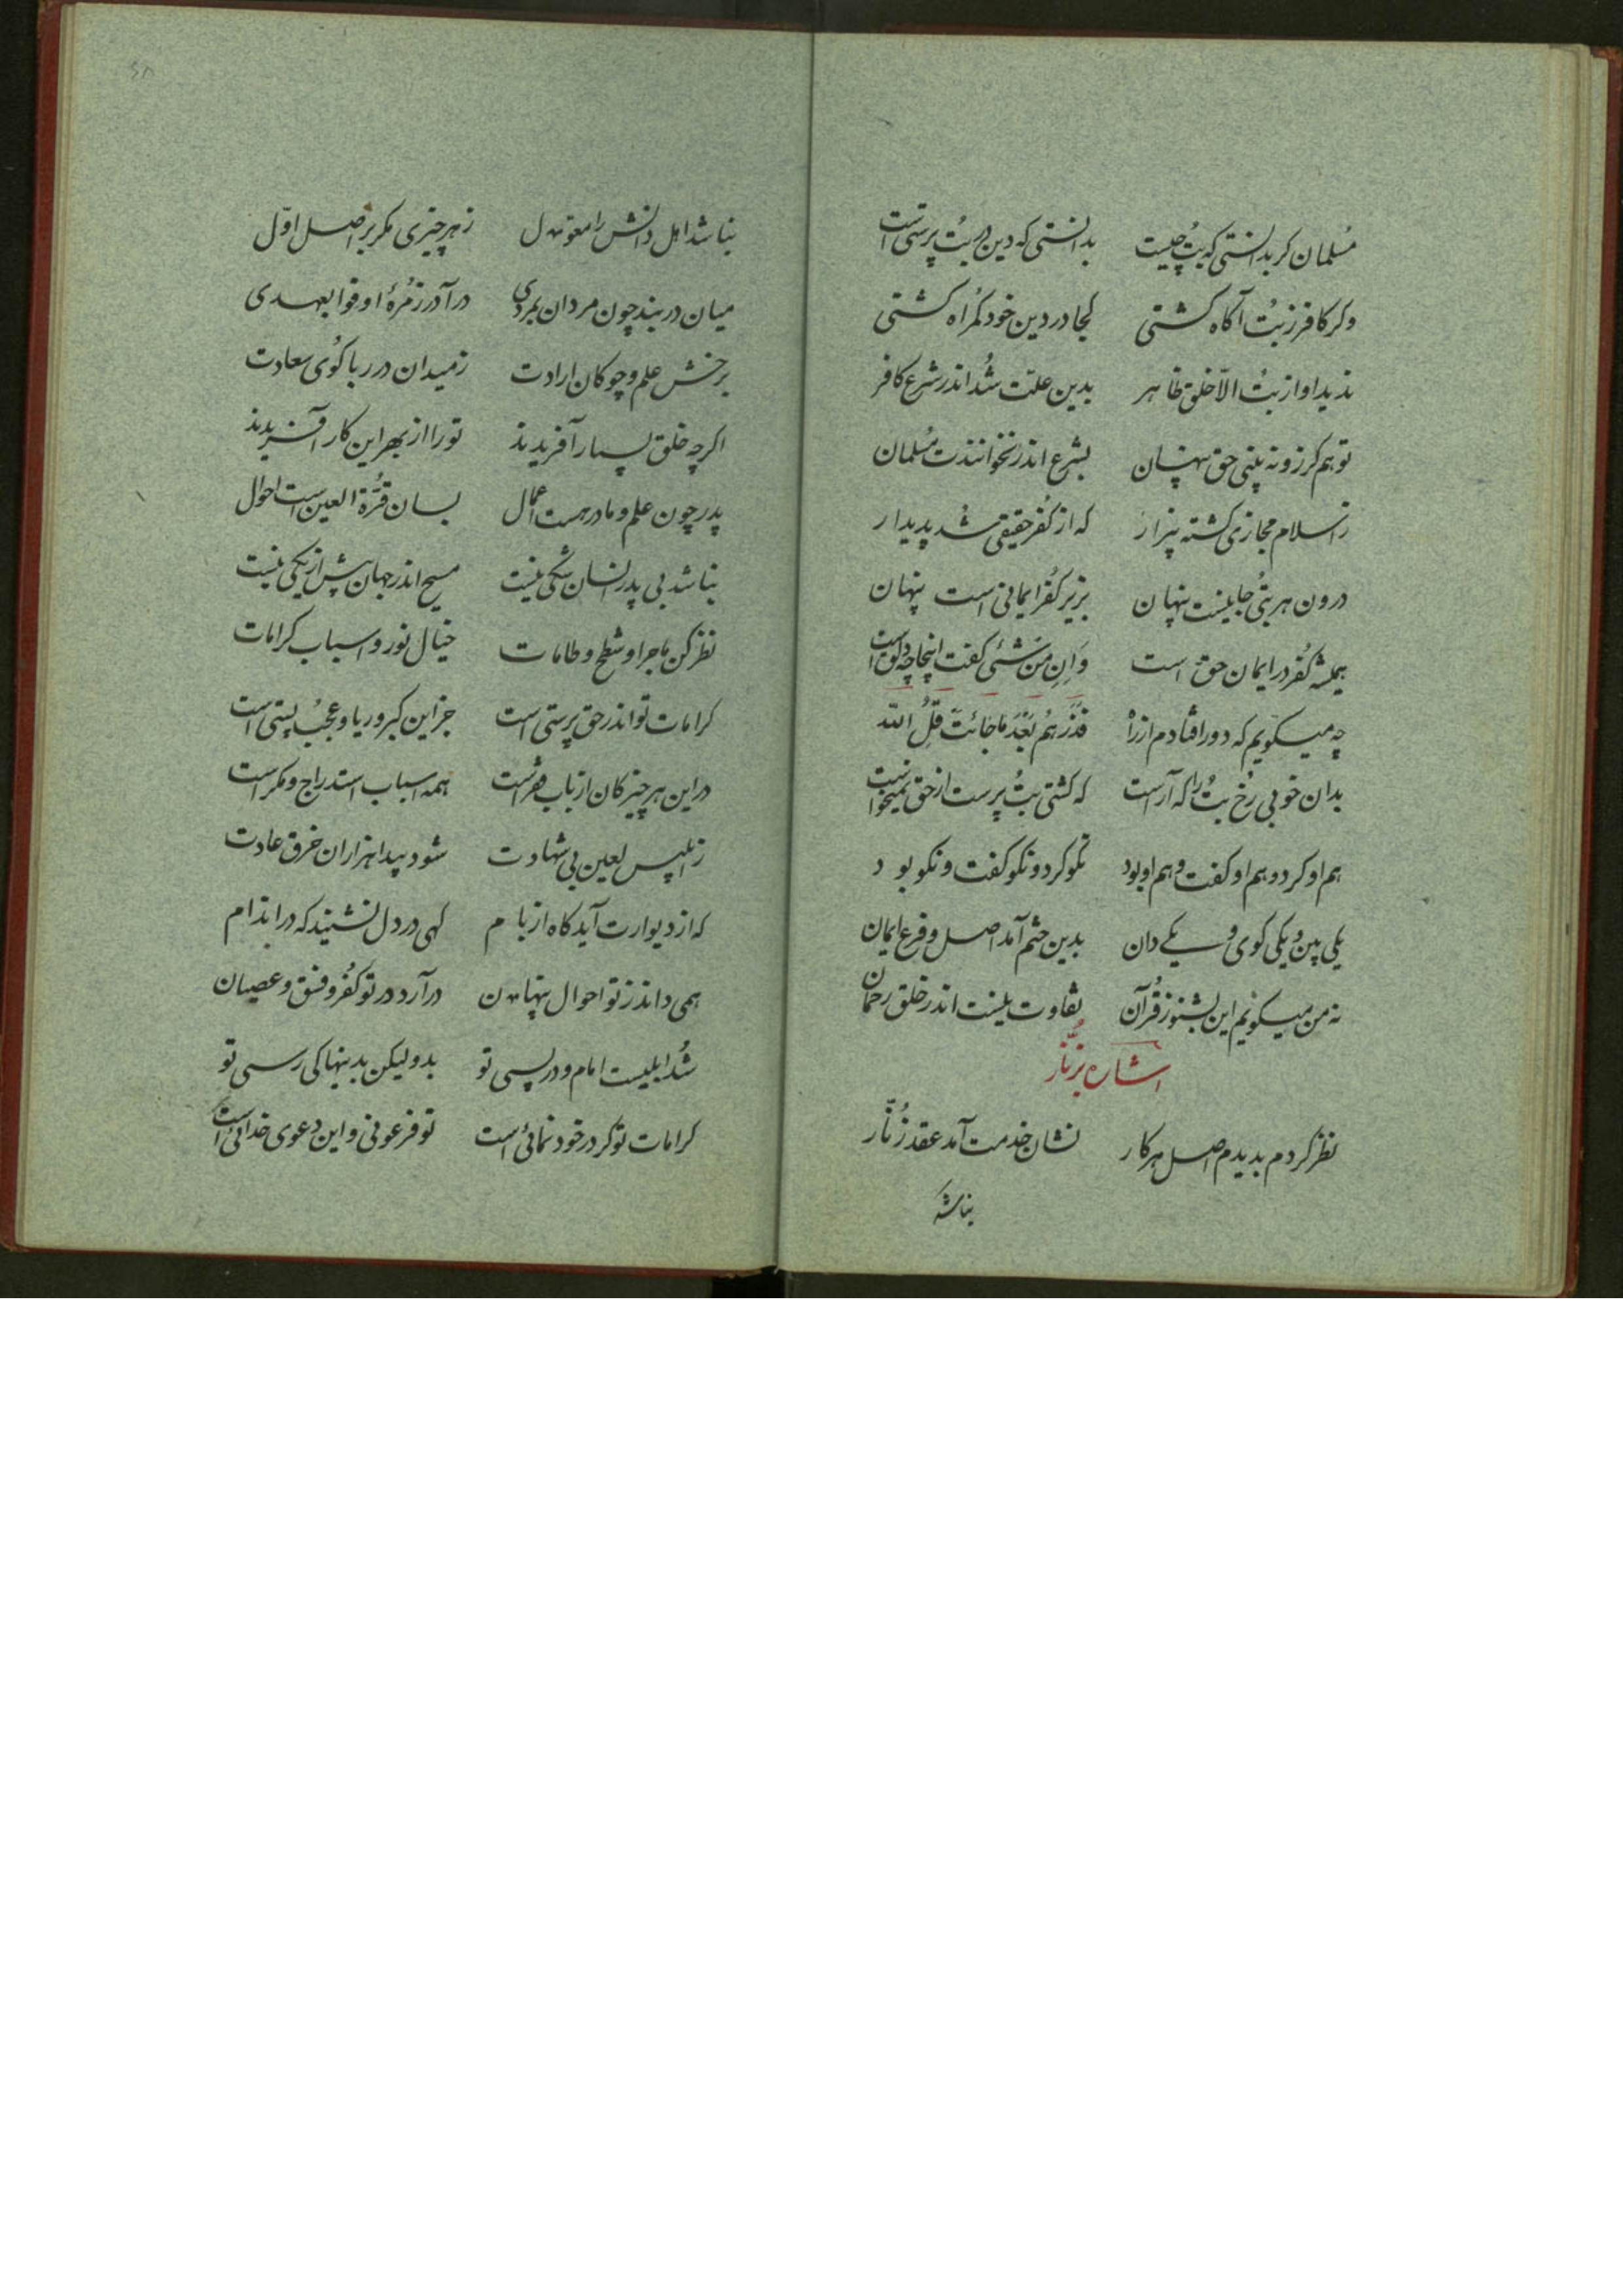 مُسلمان کر بدانستی که بُت چیست بدانستی که دین در بُت پرستی است
وکر کافر ز بُت آکاه کشتی کجا در دین خود کمراه کشتی
ندید او از بُت الّا خلق ظاهر بدین علّت شُد اندر شرع کافر
تو هم کر زو نه بینی حق پنهان بشرع اندر نخوانندت مُسلمان
ز اسلام مجازی کشته بیزار که از کُفر حقیقی شد پدیدار
درون هر بتی جانیست پنهان بزیر کُفر ایمانی است پنهان
همیشه کُفر در ایمان حق است وَاِن مِن شَیٔی کفت اینجا چه دق است
چه میکویم که دور افتادم از راه فَذَرهُم بَعدَ ماجائَت قُلِ اللّه
بدان خوبی رُخ بُت را که آراست که کشتی بُت پرست ار حق نمیخواست
هم او کرد و هم او کفت و هم او بود نکو کرد و نکو کفت و نکو بود
یکی بین و یکی کوی و یکی دان بدین ختم آمد اصل و فرع ایمان
نه من میکویم این بشنو ز قُرآن تفاوت نیست اندر خلق رحمان
اشاره بزُنّار
نظر کردم بدیدم اصل هر کار نشان خدمت آمد عقد زُنّار
نباشد
۴۸
نباشد اهل دانش را معول ز هر چیزی مکر بر اصل اوّل
میان در بند چون مردان بمردی درآ در زمُرهٔ اوفوا بعهدی
برخش علم و چوکان ارادت ز میدان در ربا کُوی سعادت
اکرچه خلق بسیار آفریدند تو را از بهر این کار آفریدند
پدر چون علم و مادر هست اعمال بسان قُرّة العین است احوال
نباشد بی پدر انسان شکی نیست مسیح اندر جهان بیش از یکی نیست
نظر کن ماجرا و شطح و طامات خیال نور و اسباب کرامات
کرامات تو اندر حق پرستی است جز این کبر و ریا و عجُب و پستی است
در این هر چیز کان از باب فقر است همه اسباب استدراج و مکر است
ز ابلیس لعین بی شهادت شود پیدا هزاران خرق عادت
که از دیوارت آید کاه از بام کهی در دل نشیند که در اندام
همی داند ز تو احوال پنهان درآرد در تو کُفر و فسق و عصیان
شُد ابلیست امام و در پسی تو بدو لیکن بدینها کی رسی تو
کرامات تو کر در خود نمائی است تو فرعونی و این دعوی خدائی است